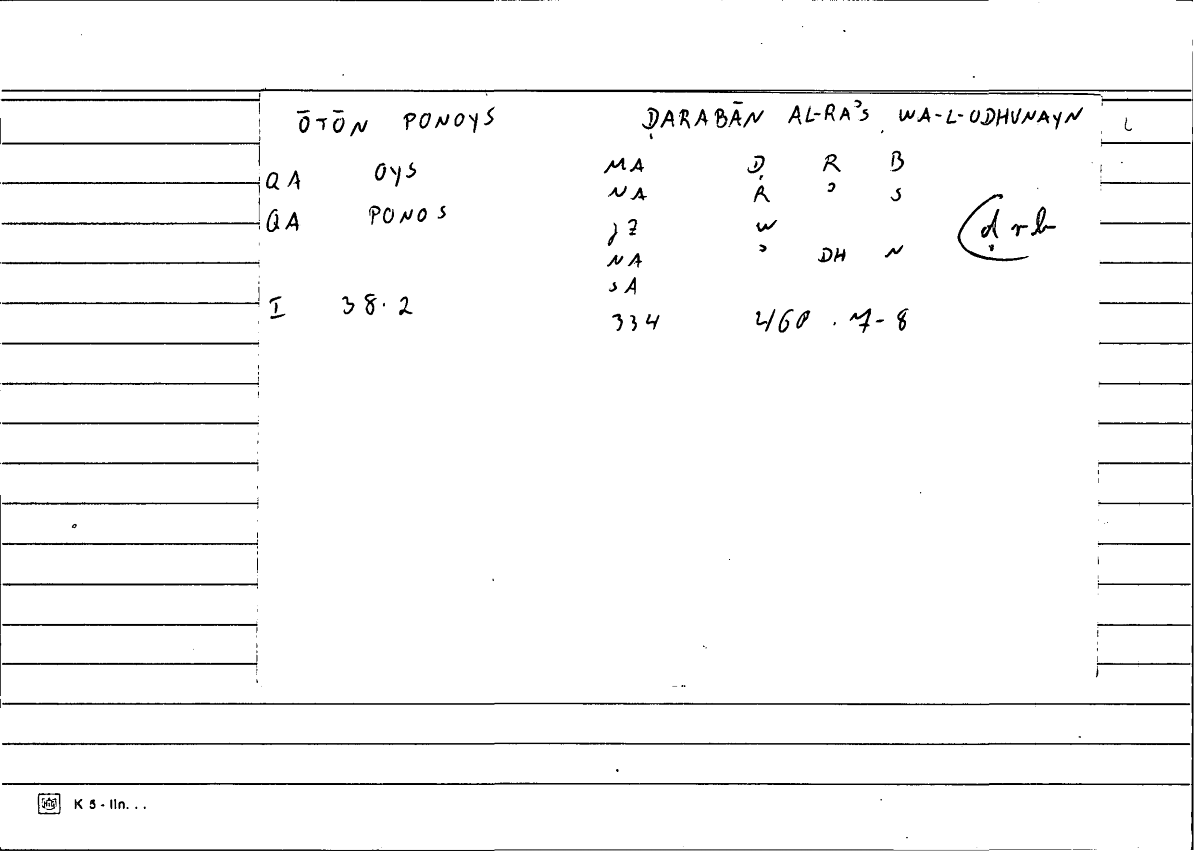 ŌTŌN PONOYS ḌARABĀN AL-RAʾS WA-L-UDHUNAYN
QA OYS MA Ḍ R B
QA PONOS NA R ʾ S
JZ W ḍrb
NA ʾ DH N
SA
I 38.2 334 460.7-8
K 5 - lln. . .